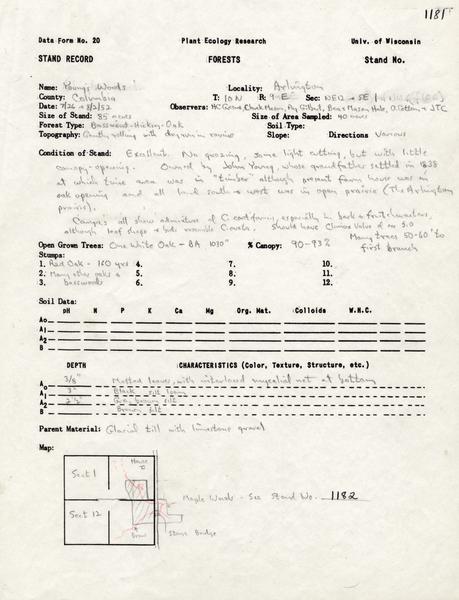 1181
Data Form No. 20 Plant Ecology Research Univ. of Wisconsin
STAND RECORD FORESTS Stand No.
Name: Young's Woods Locality: Arlington
County: Columbia T: 10N R: 9-E Sec: NE12 + SE 1
Date: 7/26 + 8/2/52 Observers: HC Greene, Chuck Mason, Pry Gilbert, JTC
Size of Stand: 85 acres Size of Area Sampled: 40 acres
Forest Type: Basswood-Hickory-Oak Soil Type:
Topography: Gently rolling with dry run in ravine Slope: Directions Various
Condition of Stand: Excellent. No grazing, some light cutting, but with little
canopy-opening. Owned by John Young, whose grandfather settled in 1838
at which time area was in "timber" although present farm house was in
oak opening and all land south + west was in open prairie (The Arlington
prairie).
Caryas all show admixture of C. cordiformis, especially in bark + fruit characters,
although leaf shape + buds resemble C. ovata. Should have Climax Value of 5.0
Many trees 50-60' to
first branch
Open Grown Trees: One White Oak - BA 1030" % Canopy: 90-93%
Stumps:
1. Red Oak - 160 yrs 4. 7. 10.
2. Many other oaks + 5. 8. 11.
3. basswoods 6. 9. 12.
Soil Data:
pH N P K Ca Mg Org. Mat. Colloids W.H.C.
Ao
A1
A2
B
DEPTH CHARACTERISTICS (Color, Texture, Structure, etc.)
Ao 3/8" Matted leaves, with interlaced mycelial net at bottom
A1 3" Black silt loam
A2 2 1/2" Gray brown silt
B Brown silt
Parent Material: Glacial till with limestone gravel
Map:
House
Sect 1
Maple Woods - See Stand No. 1182
Sect 12
Draw Stone Bridge